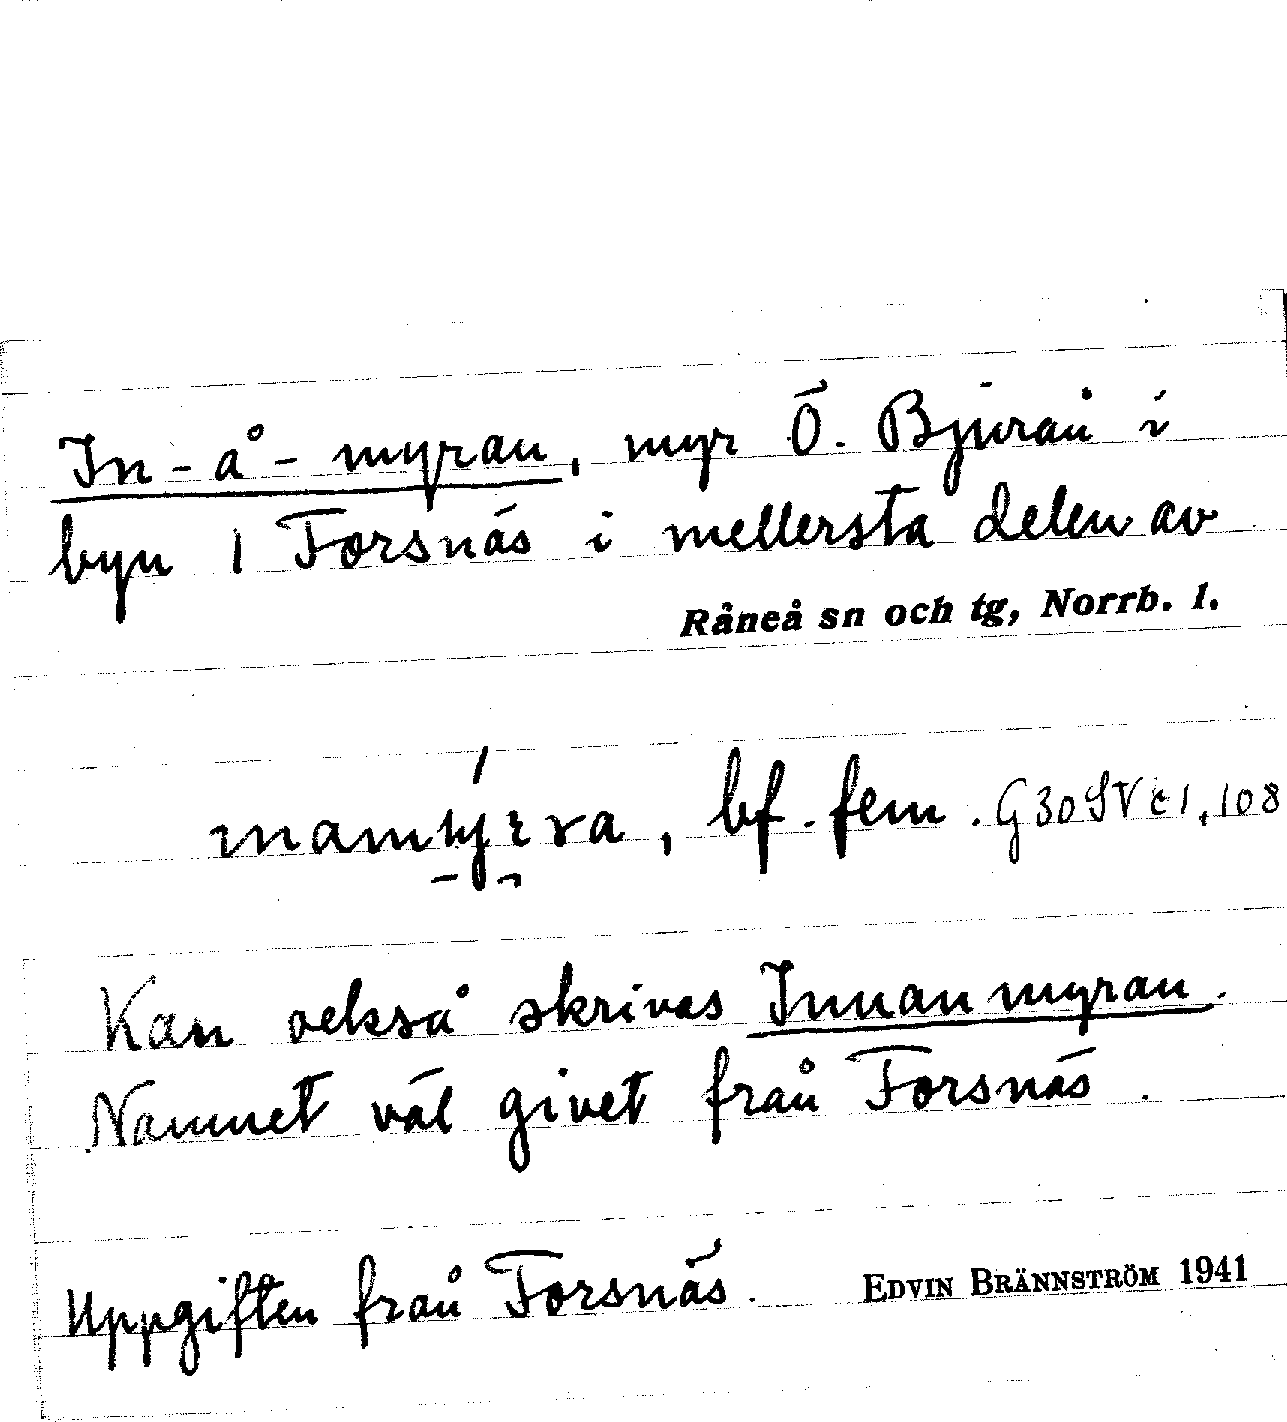 In-å-myran, myr Ö. Bjurån i
byn 1 Forsnäs i mellersta delen av
Råneå sn och tg, Norrb. l.
bf. fem. G30SVc1,108
Kan också skrivas Innanmyran.
Namnet väl givet från Forsnäs.
Uppgiften från Forsnäs. EDVIN BRÄNNSTRÖM 1941